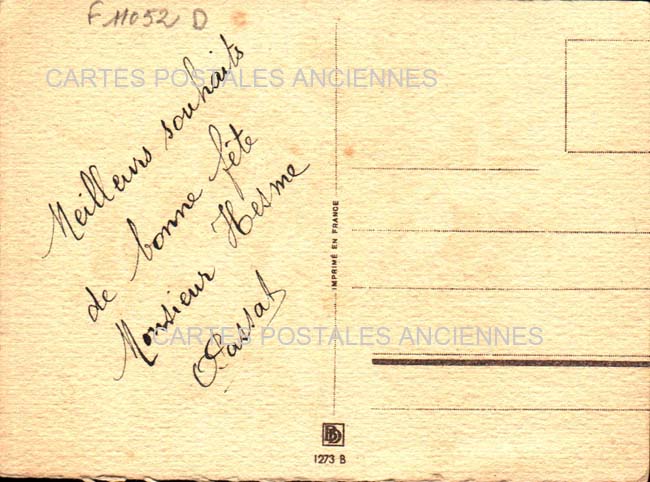 F 11052 D
CARTES POSTALES ANCIENNES
Meilleurs souhaits
de bonne fête
Monsieur Hesme
CARTES POSTALES ANCIENNES
IMPRIMÉ EN FRANCE
BD
1273 B